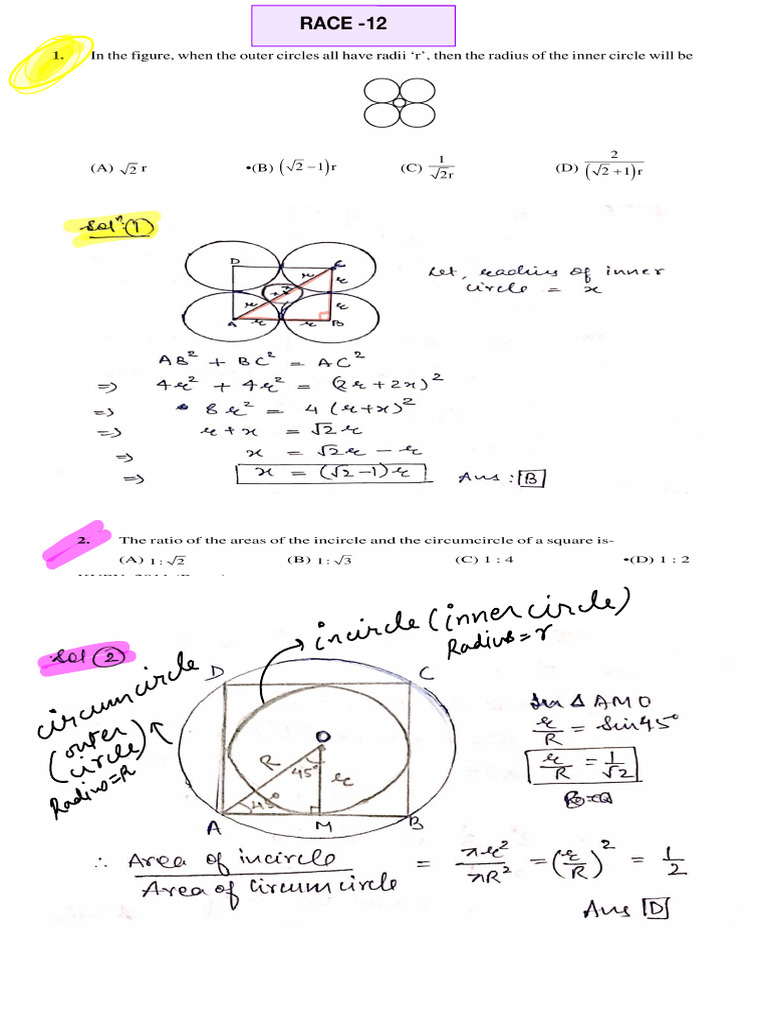 RACE -12
1. In the figure, when the outer circles all have radii ‘r’, then the radius of the inner circle will be
(A) √2 r •(B) (√2 −1)r (C) 1/√2r (D) 2/(√2 +1)r
Solⁿ:(1)
D C
r r
x x
r r
A r r B
Let, radius of inner
circle = x
AB² + BC² = AC²
⇒ 4r² + 4r² = (2r + 2x)²
⇒ 8r² = 4 (r+x)²
⇒ r + x = √2r
⇒ x = √2r − r
⇒ x = (√2−1)r Ans : B
2. The ratio of the areas of the incircle and the circumcircle of a square is-
(A) 1: √2 (B) 1: √3 (C) 1 : 4 •(D) 1 : 2
Sol (2)
incircle (inner circle)
Radius = r
circumcircle
(outer
circle)
Radius=R
D C
O
R 45° r
45°
A M B
In Δ AMO
r/R = Sin45°
r/R = 1/√2
∴ Area of incircle / Area of circumcircle = πr²/πR² = (r/R)² = 1/2
Ans D